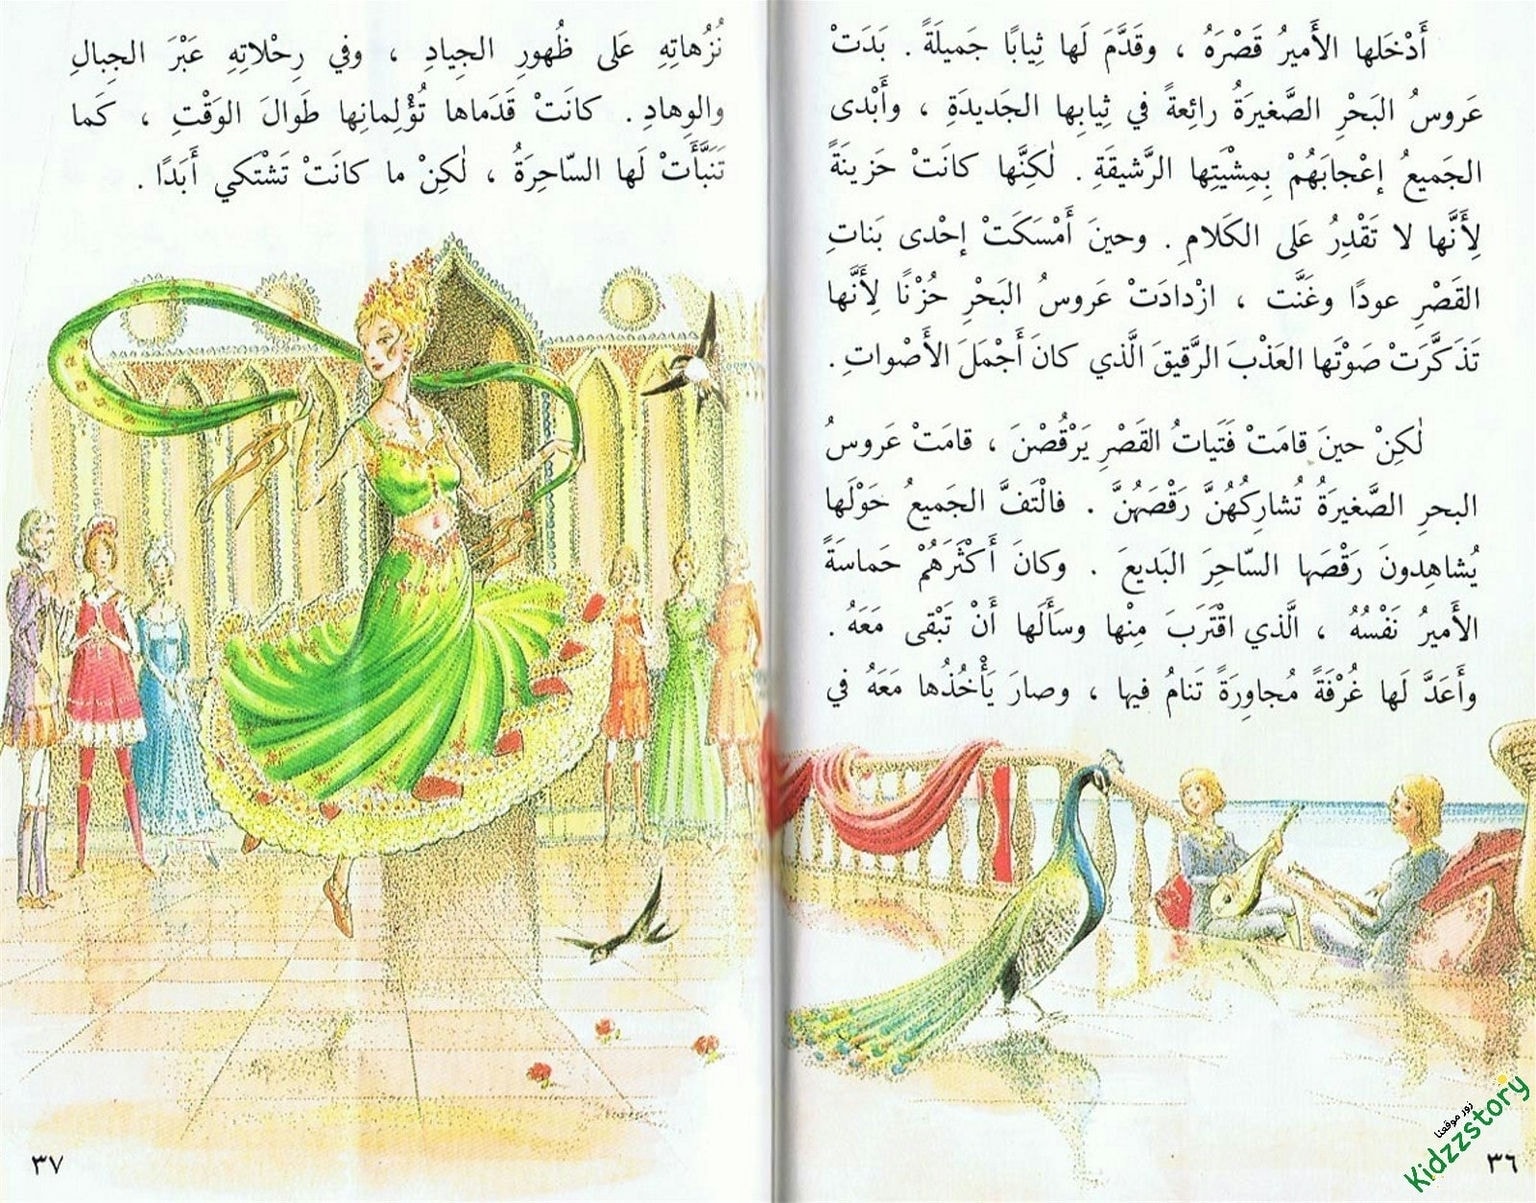 أَدْخَلَها الأَميرُ قَصْرَهُ ، وقَدَّمَ لَها ثِيابًا جَميلَةً . بَدَتْ
عَروسُ البَحْرِ الصَّغيرَةُ رائِعةً في ثِيابِها الجَديدَةِ ، وأَبْدى
الجَميعُ إعْجابَهُمْ بِمِشْيَتِها الرَّشيقَةِ . لٰكِنَّها كانَتْ حَزينَةً
لِأَنَّها لا تَقْدِرُ عَلى الكَلامِ . وحينَ أَمْسَكَتْ إحْدى بَناتِ
القَصْرِ عودًا وغَنَّت ، ازْدادَتْ عَروسُ البَحْرِ حُزْنًا لِأَنَّها
تَذَكَّرَتْ صَوْتَها العَذْبَ الرَّقيقَ الَّذي كانَ أَجْمَلَ الأَصْواتِ .
لٰكِنْ حينَ قامَتْ فَتَياتُ القَصْرِ يَرْقُصْنَ ، قامَتْ عَروسُ
البحرِ الصَّغيرَةُ تُشارِكُهُنَّ رَقْصَهُنَّ . فالْتَفَّ الجَميعُ حَوْلَها
يُشاهِدونَ رَقْصَها السّاحِرَ البَديعَ . وكانَ أَكْثَرَهُمْ حَماسَةً
الأَميرُ نَفْسُهُ ، الَّذي اقْتَرَبَ مِنْها وسَأَلَها أَنْ تَبْقى مَعَهُ .
وأَعَدَّ لَها غُرْفَةً مُجاوِرَةً تَنامُ فيها ، وصارَ يَأْخُذُها مَعَهُ في
٣٦
زور موقعنا
Kidzzstory
نُزُهاتِهِ عَلى ظُهورِ الجِيادِ ، وفي رِحْلاتِهِ عَبْرَ الجِبالِ
والوِهادِ . كانَتْ قَدَماها تُؤْلِمانِها طَوالَ الوَقْتِ ، كَما
تَنَبَّأَتْ لَها السّاحِرَةُ ، لٰكِنْ ما كانَتْ تَشْتَكي أَبَدًا .
٣٧